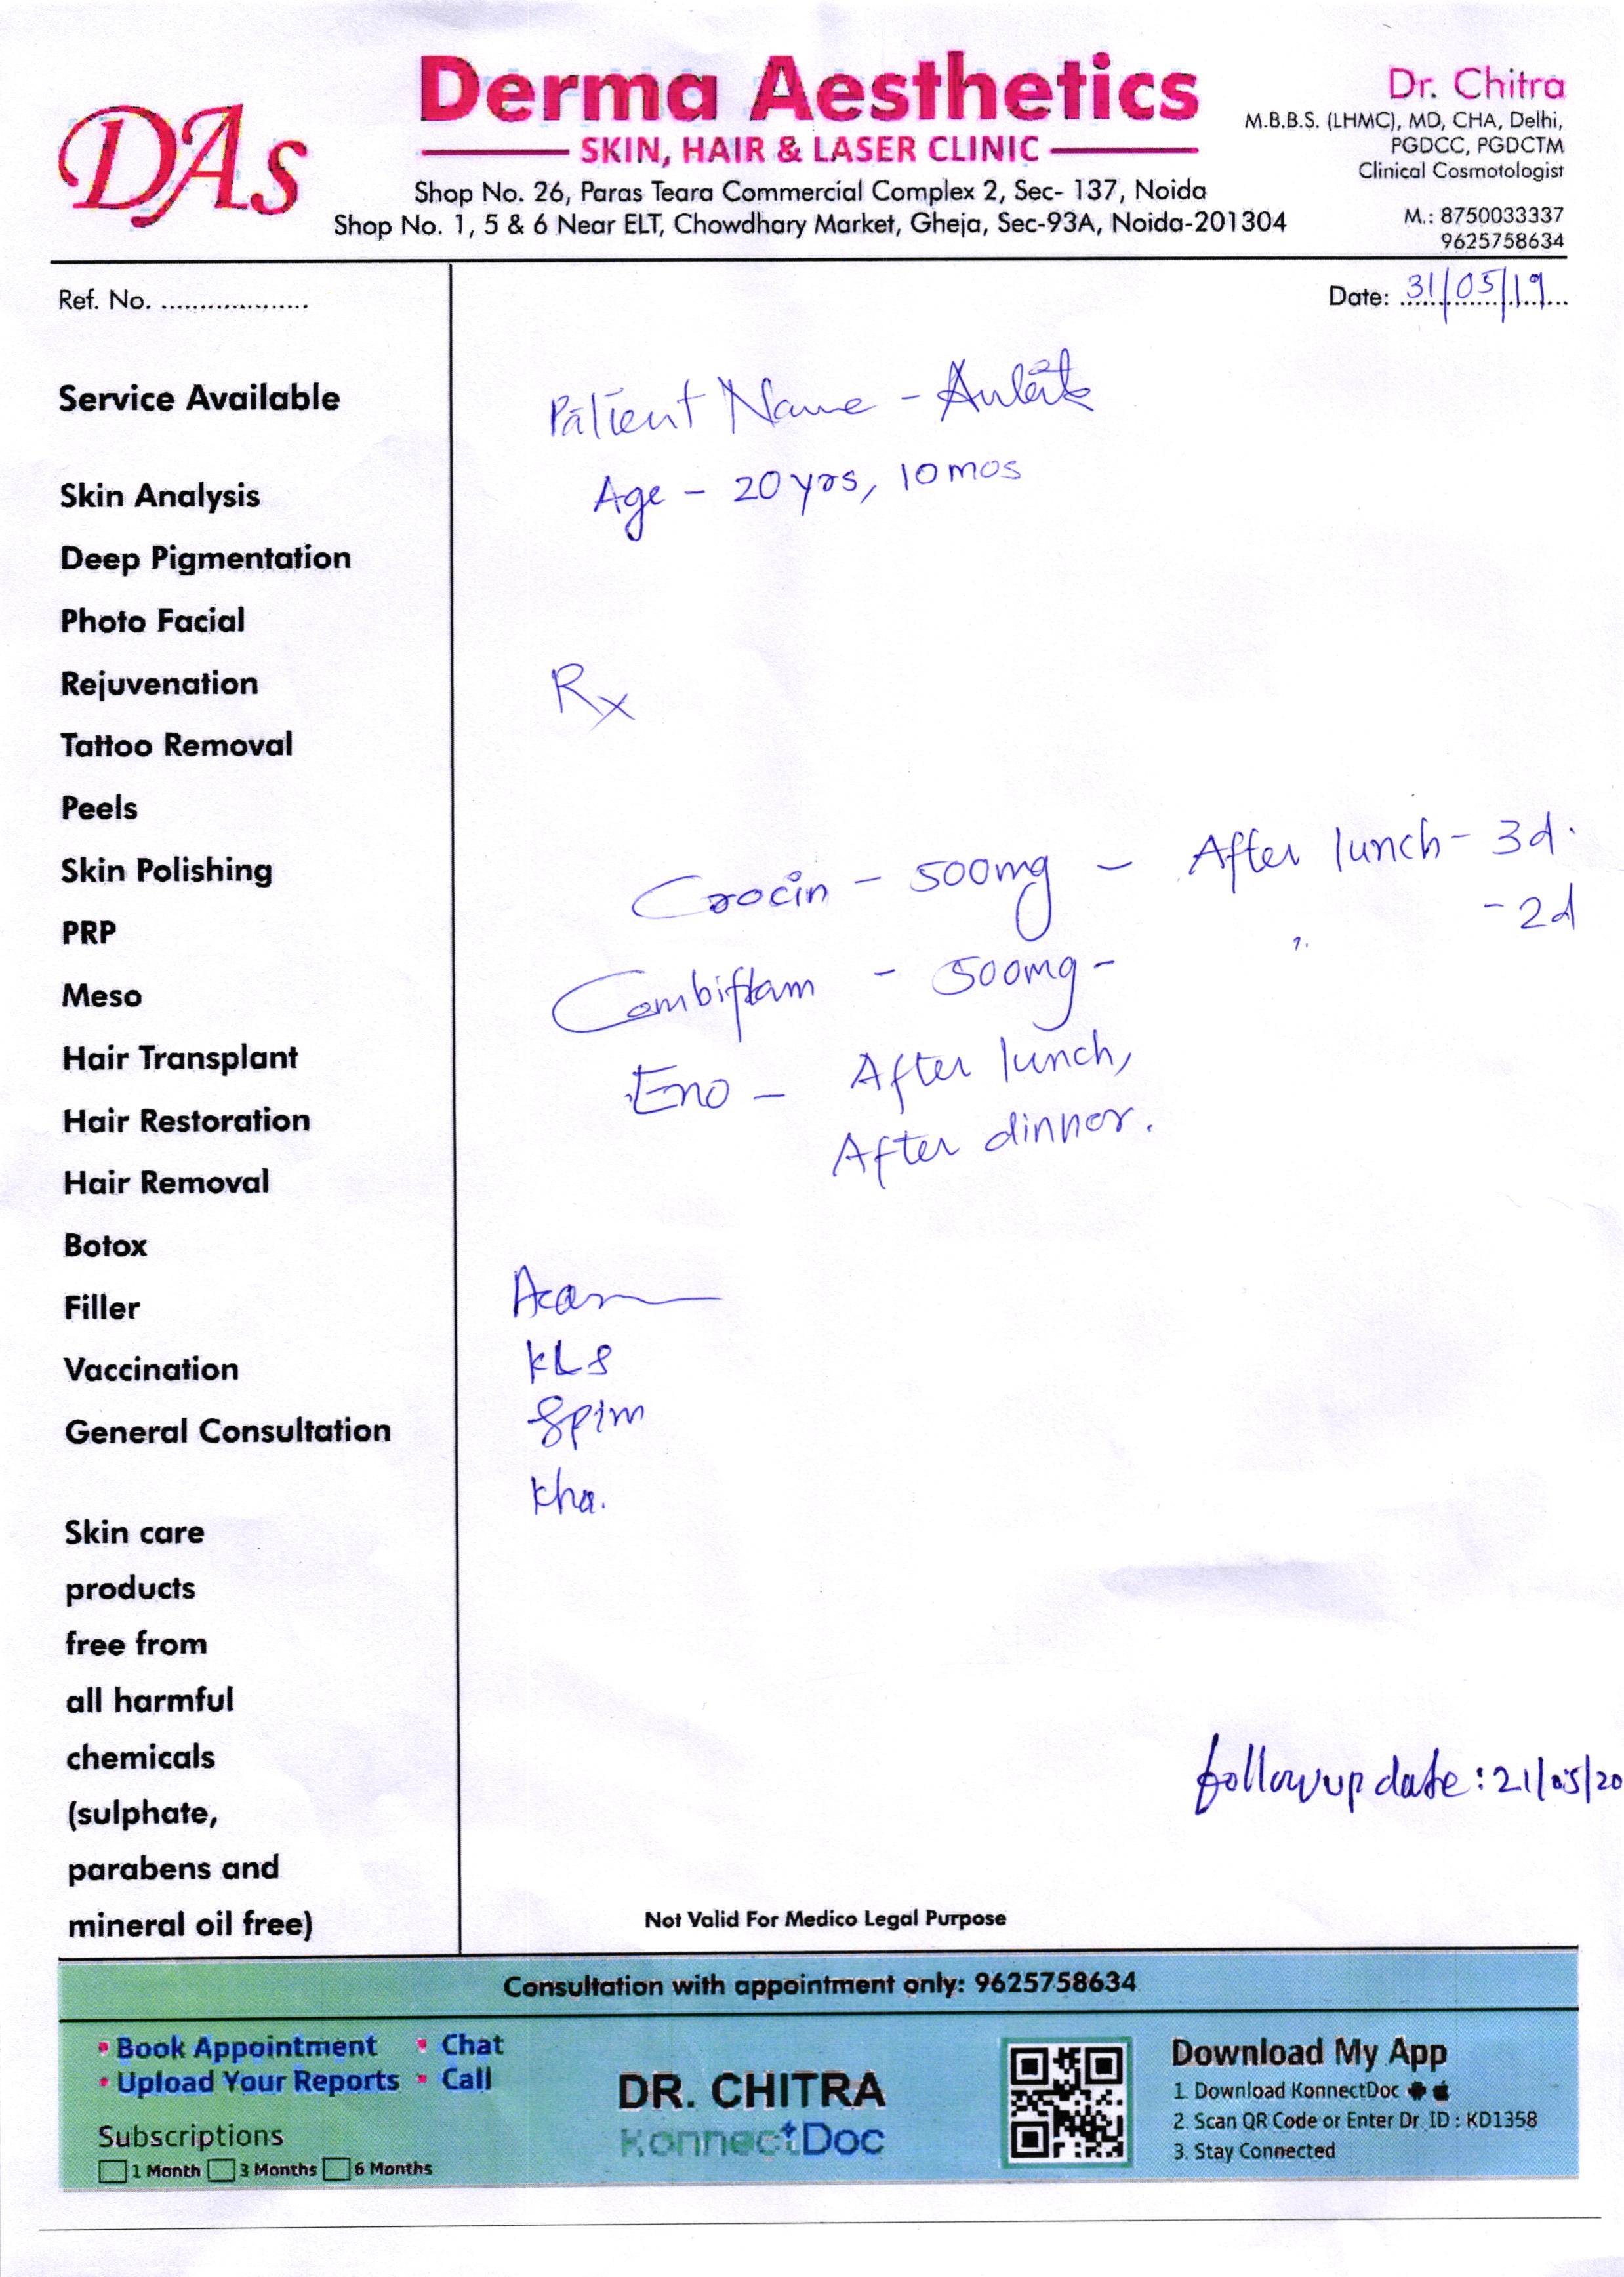 DAs
Derma Aesthetics
SKIN, HAIR & LASER CLINIC
Shop No. 26, Paras Teara Commercial Complex 2, Sec- 137, Noida
Shop No. 1, 5 & 6 Near ELT, Chowdhary Market, Gheja, Sec-93A, Noida-201304
Dr. Chitra
M.B.B.S. (LHMC), MD, CHA, Delhi,
PGDCC, PGDCTM
Clinical Cosmotologist
M.: 8750033337
9625758634
Ref. No. ...................
Date: 31/05/19
Service Available
Skin Analysis
Deep Pigmentation
Photo Facial
Rejuvenation
Tattoo Removal
Peels
Skin Polishing
PRP
Meso
Hair Transplant
Hair Restoration
Hair Removal
Botox
Filler
Vaccination
General Consultation
Skin care
products
free from
all harmful
chemicals
(sulphate,
parabens and
mineral oil free)
Patient Name -
Age - 20 yrs, 10 mos
Rx
Crocin - 500mg - After lunch - 3d.
Combiflam - 500mg - " - 2d
Eno - After lunch,
After dinner.
KLS
spim
kha.
followup date: 21/05/20
Not Valid For Medico Legal Purpose
Consultation with appointment only: 9625758634
• Book Appointment • Chat
• Upload Your Reports • Call
Subscriptions
1 Month 3 Months 6 Months
DR. CHITRA
KonnectDoc
Download My App
1. Download KonnectDoc
2. Scan QR Code or Enter Dr. ID : KD1358
3. Stay Connected